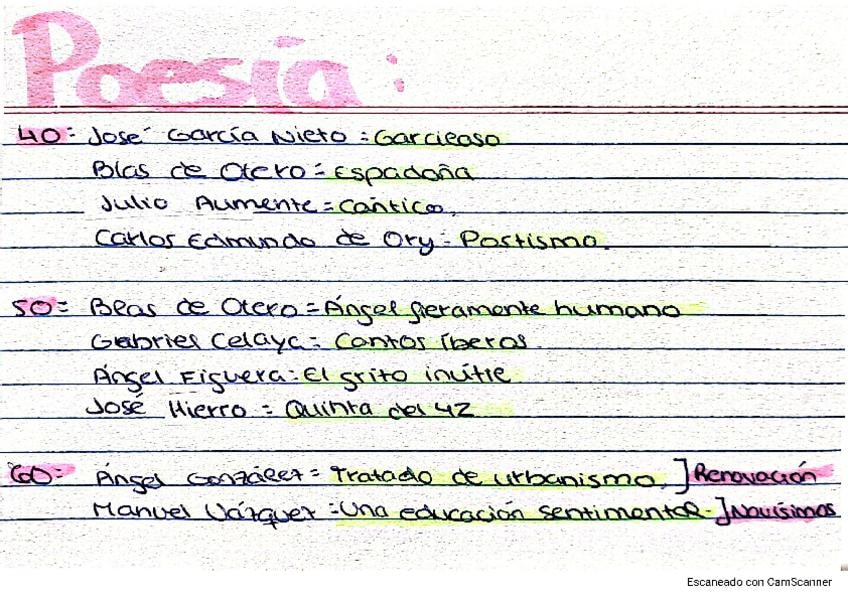 Poesía:
40= José García Nieto = Garcilaso
Blas de Otero = Espadaña
Julio Aumente = Cántico.
Carlos Edmundo de Ory = Postismo.
50= Blas de Otero = Ángel fieramente humano
Gabriel Celaya = Cantos íberos.
Ángel Figuera = El grito inútil
José Hierro = Quinta del 42
60= Ángel González = Tratado de urbanismo. ] Renovación
Manuel Vázquez = Una educación sentimental - ] Novísimos
Escaneado con CamScanner